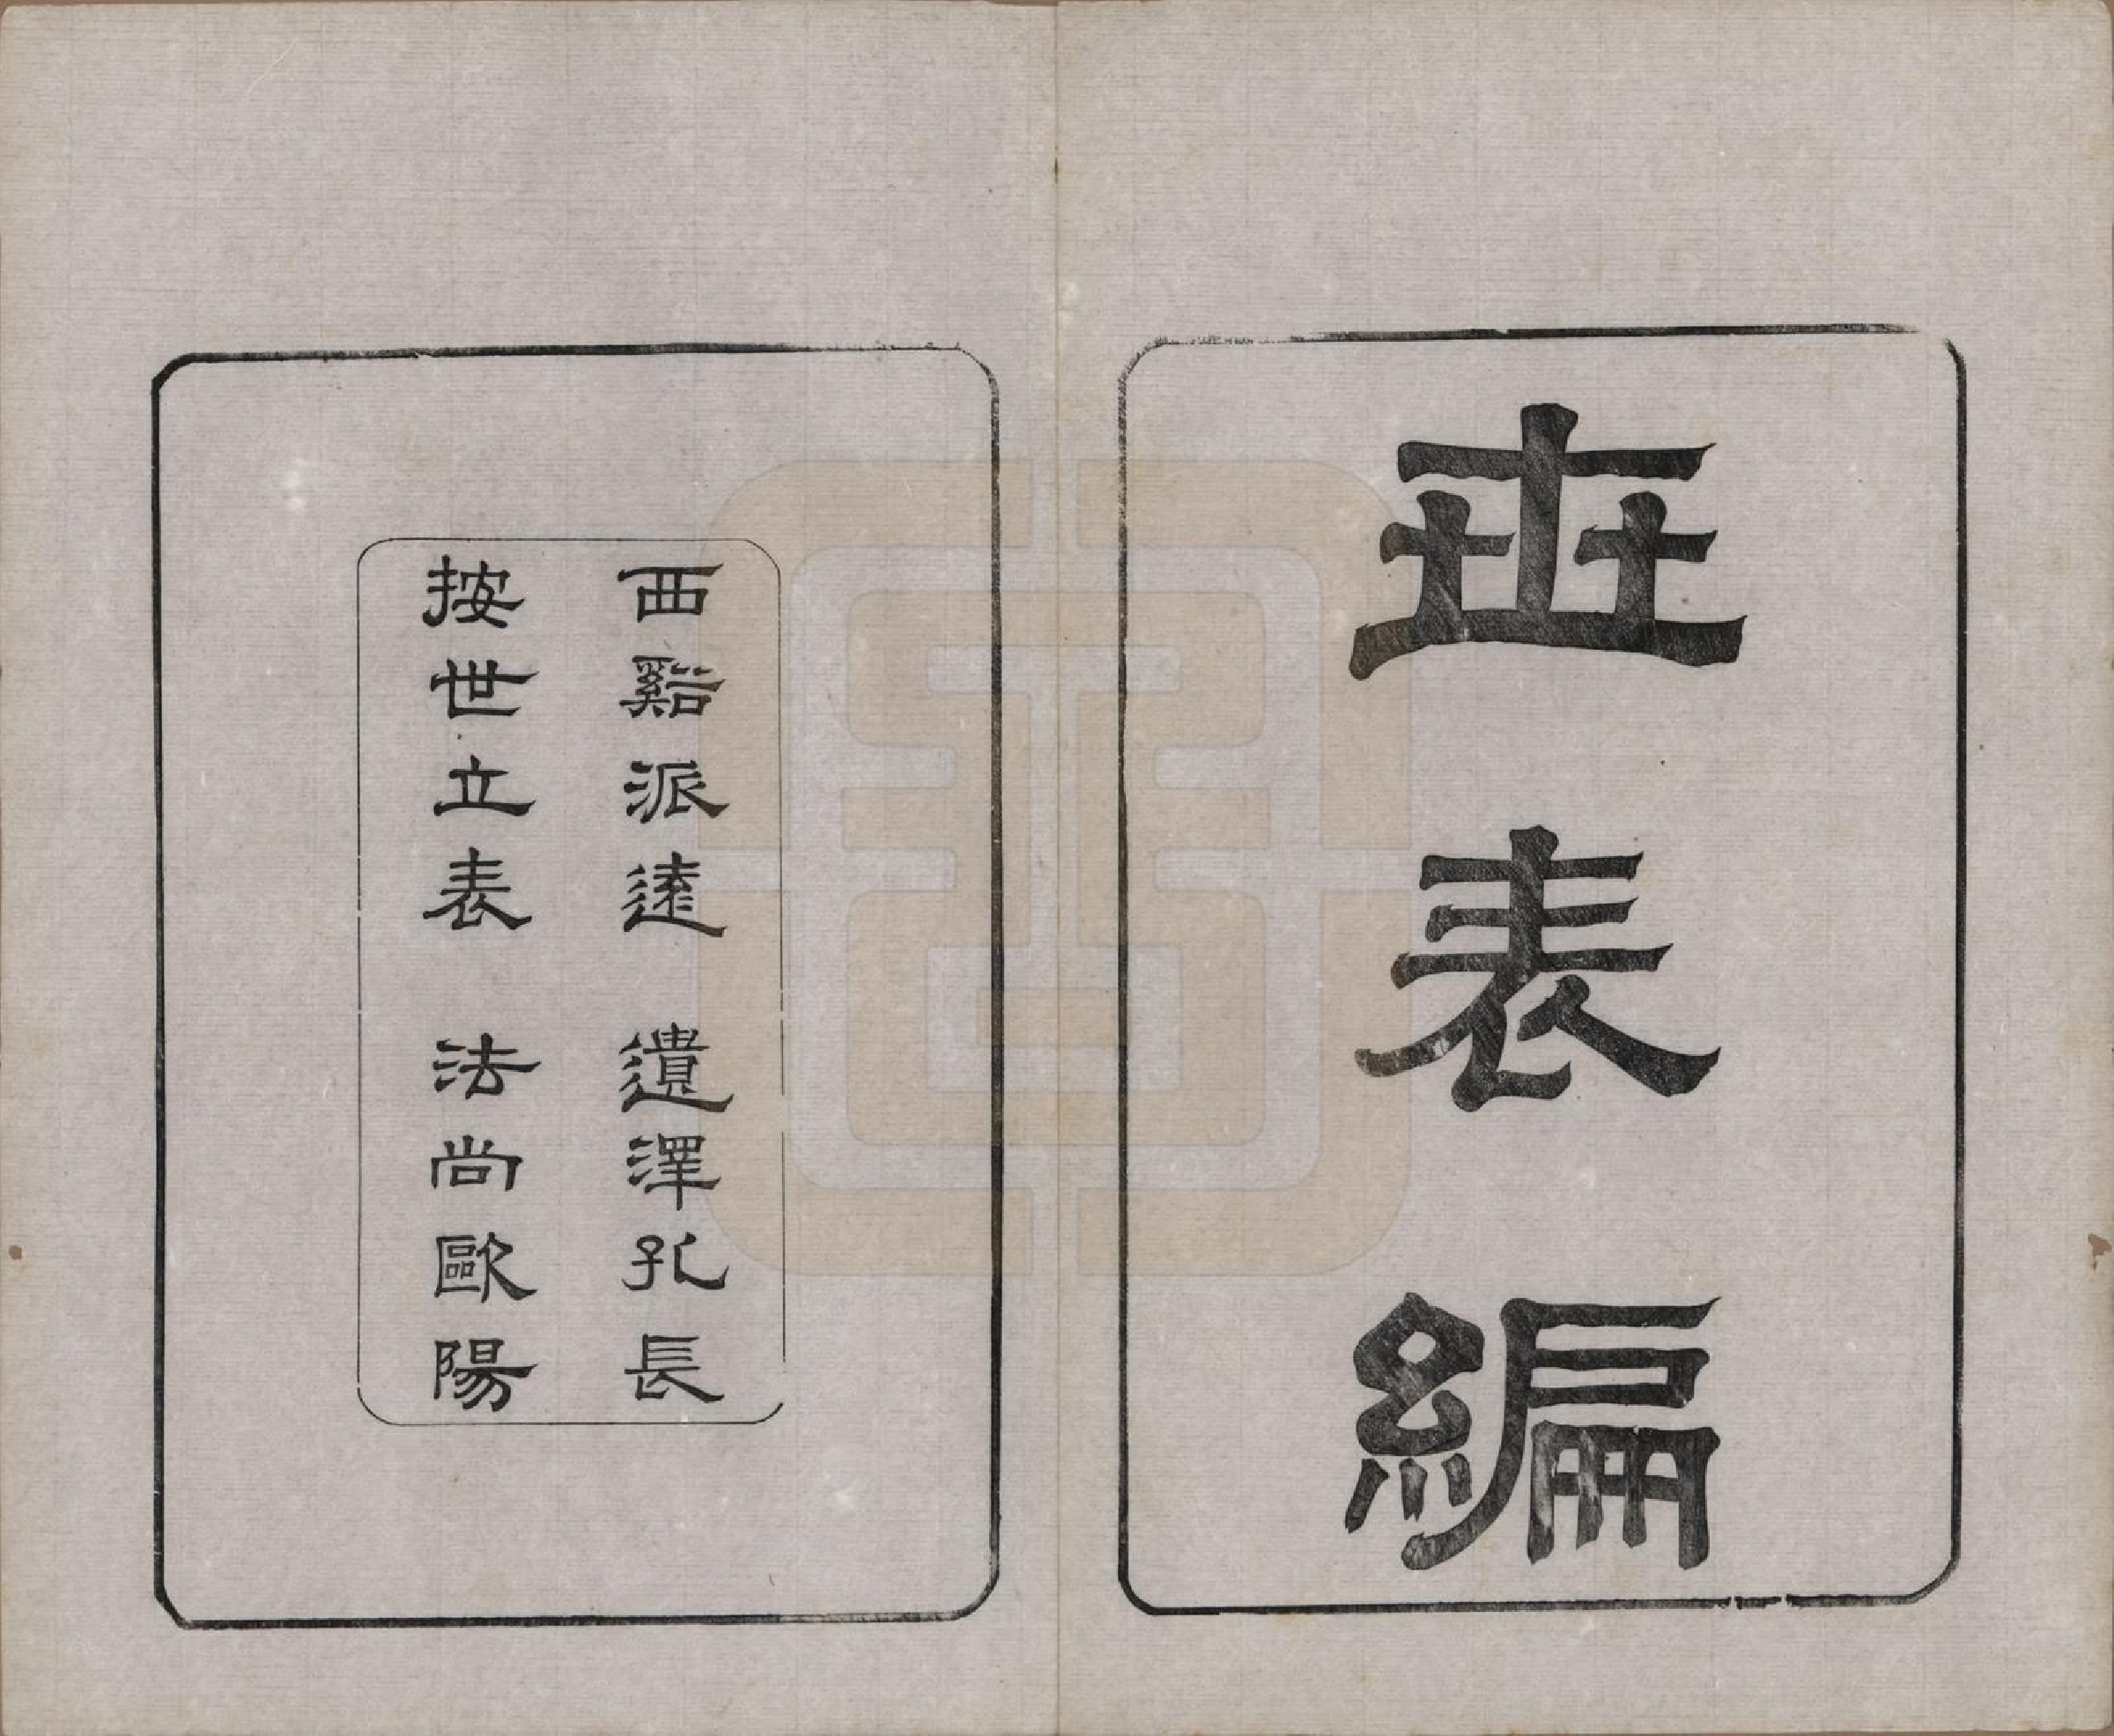 世表編
西谿派遠　遺澤孔長
按世立表　法尚歐陽